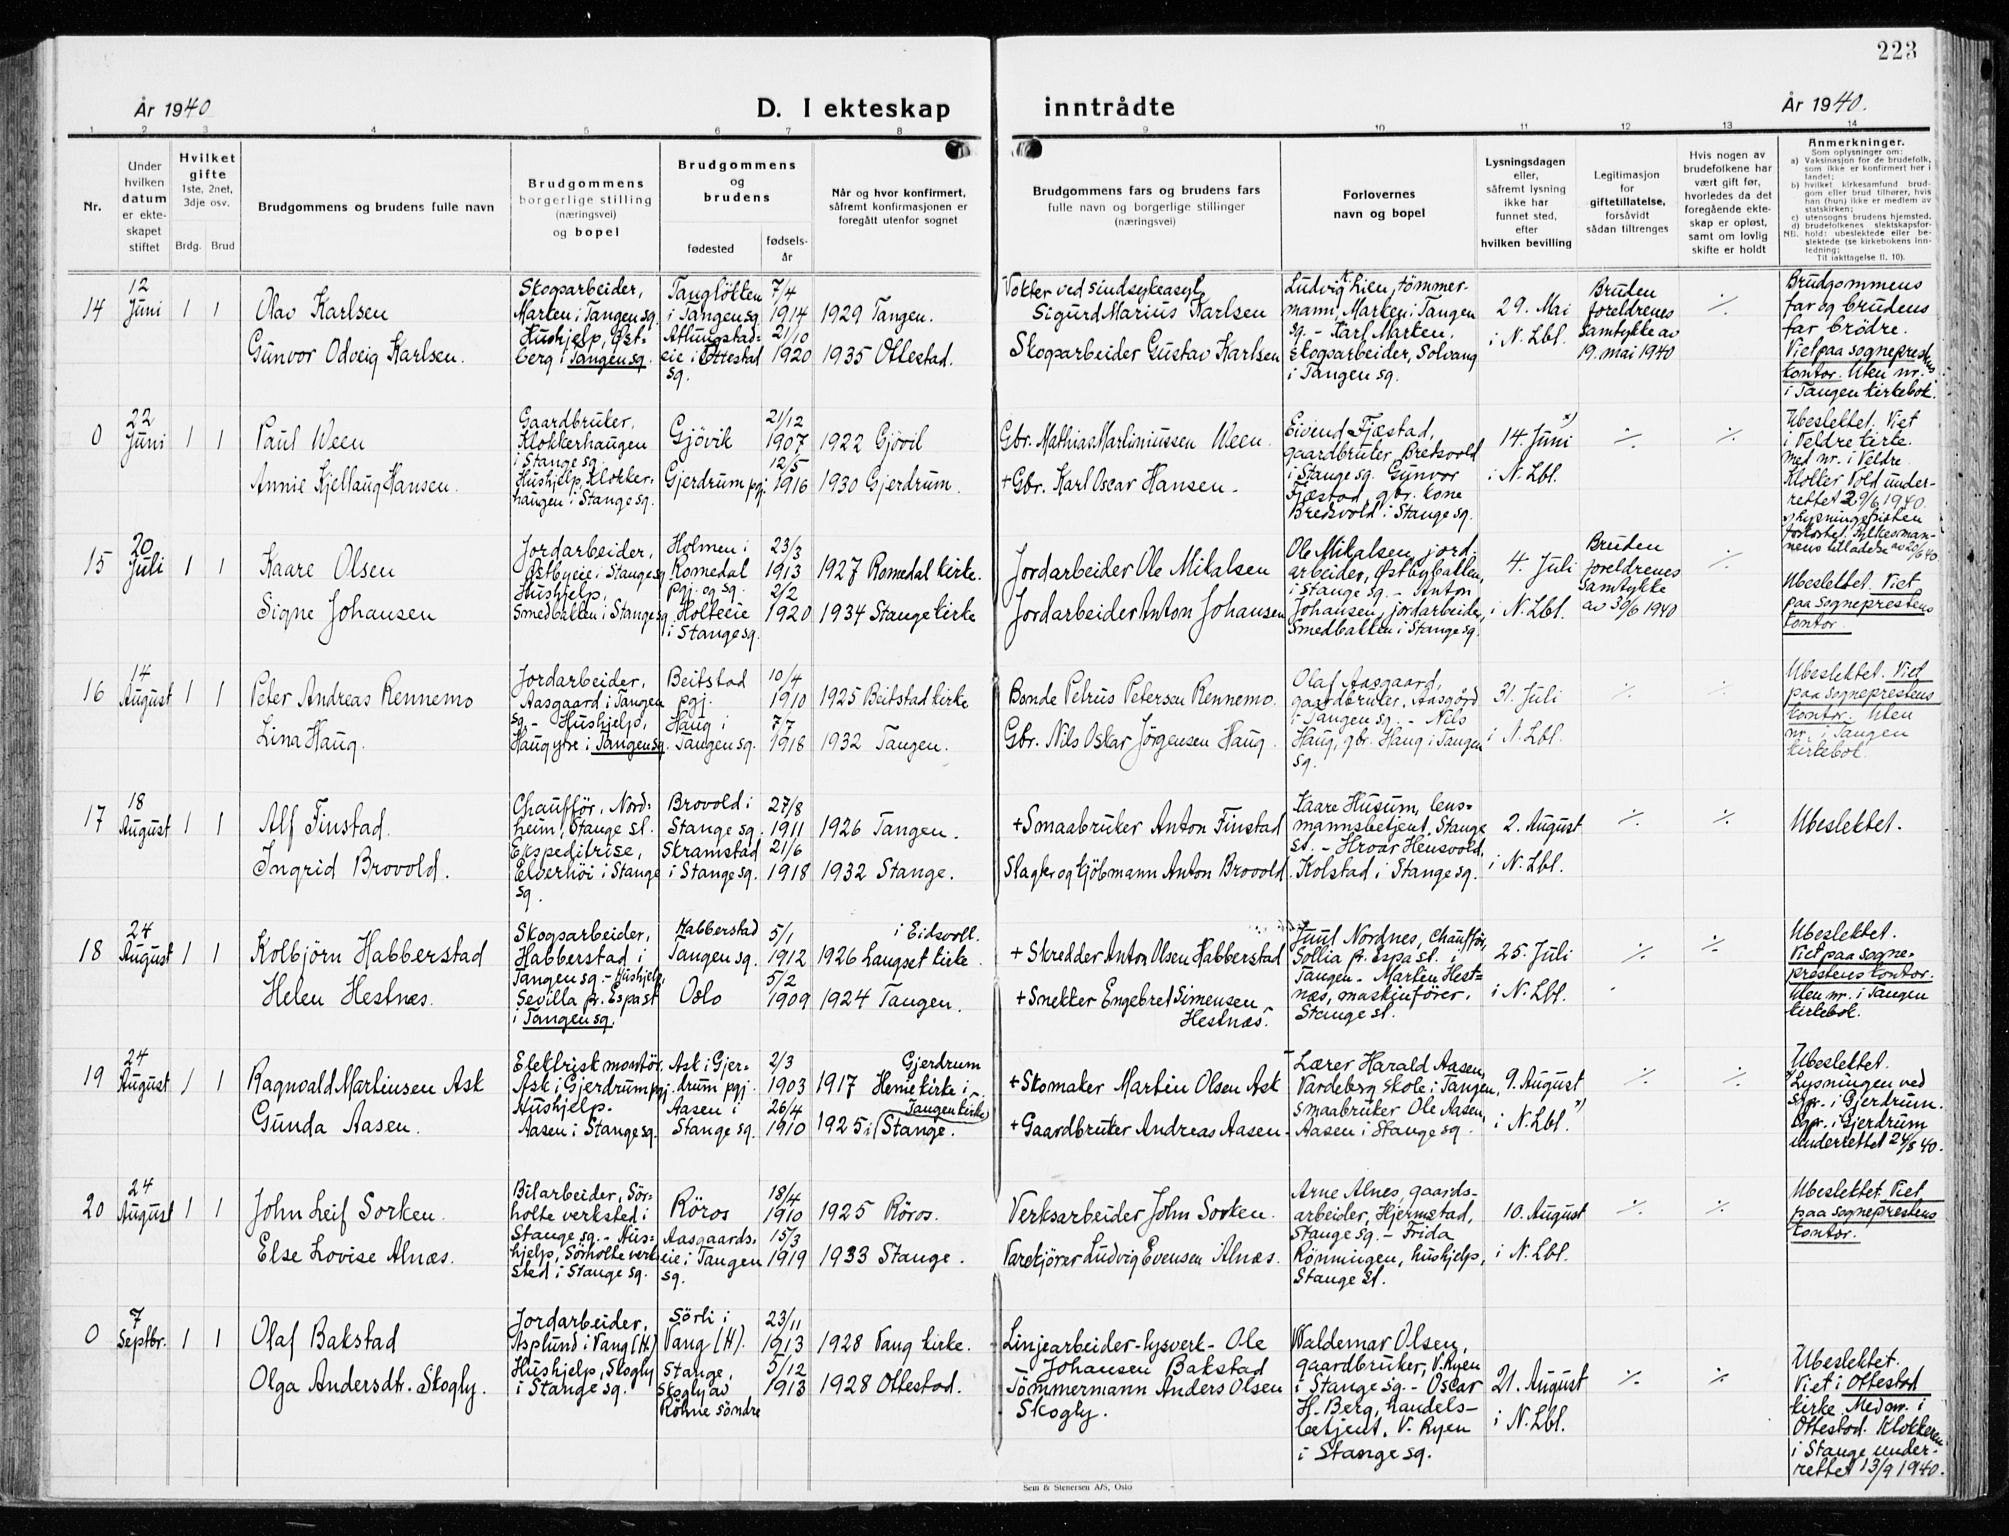 223
År 1940
D. I ekteskap
inntrådte
År 1940.
1 2 3 4 5 6 7 8 9 10 11 12 13 14
Nr.
Under
hvilken
datum
er ekte-
skapet
stiftet
Hvilket
gifte
1ste, 2net,
3dje osv.
Brdg. Brud
Brudgommens og brudens fulle navn
Brudgommens
borgerlige stilling
(næringsvei)
og bopel
Brudgommens
og
brudens
fødested
fødsels-
år
Når og hvor konfirmert,
såfremt konfirmasjonen er
foregått utenfor sognet
Brudgommens fars og brudens fars
fulle navn og borgerlige stillinger
(næringsvei)
Forlovernes
navn og bopel
Lysningsdagen
eller,
såfremt lysning
ikke har
funnet sted,
efter
hvilken bevilling
Legitimasjon
for
giftetillatelse,
forsåvidt
sådan tiltrenges
Hvis nogen av
brudefolkene har
vært gift før,
hvorledes da det
foregående ekte-
skap er opløst,
samt om lovlig
skifte er holdt
Anmerkninger.
Som oplysninger om:
a) Vaksinasjon for de brudefolk,
som ikke er konfirmert her i
landet;
b) hvilket kirkesamfund brud-
gom eller brud tilhører, hvis
han (hun) ikke er medlem av
statskirken;
c) utensogns brudens hjemsted.
d) brudefolkenes slektskapsfor-
NB. hold: ubeslektede eller be-
slektede (se kirkebokens inn-
ledning;
Til iakttagelse II. 10).
14
12
Juni
1 1
Olav Karlsen
Gunvor Odveig Karlsen.
Skogsarbeider,
Marten i Tangen sg.
Hushjelp, Øst-
berg i Tangen sg.
Tangløkken
i Tangen sg.
7/4
1914
eie i Ottestad
sg.
21/10
1920
1929 Tangen.
1935 Ottestad.
Vokter ved sindsykeasyl
Sigurd Marius Karlsen
Skogsarbeider Gustav Karlsen
Ludvig Lien, tömmer-
mann, Marken i Tangen
sg. - Karl Marken,
skogsarbeider, Solvang
i Tangen sg.
29. Mai
i N. Lbl.
Bruden
foreldrenes
samtykke av
19. mai 1940
⁒
Brudgommens
far og brudens
far brödre.
Viet paa sogneprestens
kontor. Uten nr.
i Tangen kirkebok.
0
22
Juni
1 1
Paul Ween
Annie Kjellaug Hansen.
Gaardbruker,
Klokkerhaugen
i Stange sg.
Hushjelp, Klokker-
haugen i Stange sg.
Gjövik
21/12
1907
Gjerdrum pgj.
12/5
1916
1922 Gjövik
1930 Gjerdrum.
Gbr. Mathias Martiniussen Ween.
+ Gbr. Karl Oscar Hansen.
Eivend Fjæstad,
gaardbruker, Bredsvold
i Stange sg. Gunvor
Fjæstad, gbr. kone
Bredsvold i Stange sg.
14. Juni x)
i N. Lbl.
⁒ ⁒
Ubeslektet. Viet
i Veldre kirke.
med nr. i Veldre.
Klokker Vold under-
rettet 29/6 1940.
x) Lysningsfristen
forkortet. Fylkesman-
nens tilladelse av 20/6 40.
15
20
Juli
1 1
Kaare Olsen
Signe Johansen
Jordarbeider,
Østbyeie i Stange sg
Hushjelp,
Smedbakken i Stange sg
Holmen i
Romedal
pgj. og sg.
23/3
1913
Holteeie
i Stange sg.
2/2
1920
1927 Romedal kirke.
1934 Stange kirke
Jordarbeider Ole Mikalsen
Jordarbeider Anton Johansen
Ole Mikalsen, jord-
arbeider, Østbybakken,
i Stange sg. - Anton
Johansen, jordarbeider,
Smedbakken i Stange sg.
4. Juli
i N. Lbl.
Bruden
foreldrenes
samtykke
av 30/6 1940
⁒
Ubeslektet. Viet
paa sogneprestens
kontor.
16
14
August
1 1
Peter Andreas Rennemo
Lina Haug.
Jordarbeider,
Aasgaard i Tangen
sg. - Hushjelp,
Haug ytre i Tangen sg.
Beitstad
pgj.
10/4
1910
Haug i
Tangen sg.
7/7
1918
1925 Beitstad kirke
1932 Tangen.
Bonde Petrus Petersen Rennemo.
Gbr. Nils Oskar Jørgensen Haug.
Olaf Aasgaard,
gaardbruker, Aasgård
i Tangen sg. - Nils
Haug, gbr. Haug i Tangen
sg.
31. Juli
i N. Lbl.
⁒ ⁒
Ubeslektet. Viet
paa sogneprestens
kontor. Uten
nr. i Tangen
kirkebok.
17
18
August
1 1
Alf Finstad.
Ingrid Brovold.
Chauffør, Nord-
heim, Stange st.
Ekspeditrise,
Elverhöi i Stange
sg.
Brovold i
Stange sg.
27/8
1911
Skramstad
i Stange sg.
21/6
1918
1926 Tangen.
1932 Stange.
+ Smaabruker Anton Finstad
Slagter og kjöbmann Anton Brovold.
Kaare Husum, lens-
mannsbetjent, Stange
st. - Hroar Hensvold,
Kolstad i Stange sg.
2. August
i N. Lbl.
⁒ ⁒
Ubeslektet.
18
24
August
1 1
Kolbjörn Habberstad
Helen Hestnæs.
Skogsarbeider,
Habberstad i
Tangen sg. - Hushjelp,
Sevilla pr. Espa st
i Tangen sg.
Habberstad
Tangen sg.
5/1
1912
Oslo
5/2
1909
i Eidsvoll.
1926 Langset kirke
1924 Tangen.
+ Skredder Anton Olsen Habberstad
+ Snekker Engebret Simensen
Hestnæs.
Juul Nordnes, Chauffør,
Sollia pr. Espa st. i
Tangen - Marten Hest-
næs, maskinfører,
Stange st.
25. Juli
i N. Lbl.
⁒ ⁒
Ubeslektet.
Viet paa sogne-
prestens kontor.
Uten nr. i Tangen
kirkebok.
19
24
August
1 1
Ragnvald Martinsen Ask
Gunda Aasen.
Elektrisk montör,
Ask i Gjerdrum pgj.
Hushjelp.
Aasen i Stange sg.
Ask i Gjer-
drum pgj.
2/3
1903
Aasen i
Stange sg.
26/4
1910
Gjerdrum
1917 Heni kirke i
Tangen kirke
1925 i Stange.
+ Skomaker Martin Olsen Ask
+ Gaardbruker Andreas Aasen
Lærer Harald Aasen,
Vardeberg skole i Tangen,
Smaabruker Ole Aasen,
Aasen i Stange sg.
9. August
i N. Lbl. x)
⁒ ⁒
Ubeslektet.
x) Lysningen ved
sgpr. i Gjerdrum.
Sgpr. i Gjerdrum
underrettet 24/8 40.
20
24
August
1 1
John Leif Sorken.
Else Lovise Alnæs.
Bilarbeider, Sör-
holte verksted i
Stange sg. - Hus-
hjelp, Sörholte verk-
sted i Stange sg.
Röros
18/4
1910
Aasgaards-
eie i Tangen
sg.
15/3
1919
1925 Röros.
1933 Stange.
Verksarbeider John Sorken.
Varekjörer Ludvig Evensen Alnæs.
Arne Alnes, gaards-
arbeider, Hjermstad,
Stange sg. - Frida
Rønningen, hushjelp,
Stange st.
10. August
i N. Lbl.
⁒ ⁒
Ubeslektet. Viet
paa sogneprestens
kontor.
0
7
Septbr.
1 1
Olaf Bakstad
Olga Andersdtr. Skogly.
Jordarbeider,
Asplund i Vang (H)
Hushjelp, Skogly
i Stange sg.
Sörli i
Vang (H).
23/11
1913
Stange,
Skogly av
Röhne söndre
5/12
1913
1928 Vang kirke.
1928 Ottestad.
Linjearbeider - lysverk - Ole
Johansen Bakstad
Tömmermann Anders Olsen
Skogly.
Waldemar Olsen,
gaardbruker, V. Ryen
i Stange sg. - Oscar
H. Berg, handels-
betjent, V. Ryen
i Stange sg.
21. August
i N. Lbl.
⁒ ⁒
Ubeslektet.
Viet i Ottestad
kirke. Med nr. i
Ottestad. Klokkeren
i Stange under-
rettet 13/9 1940.
Sem & Stenersen A/S, Oslo